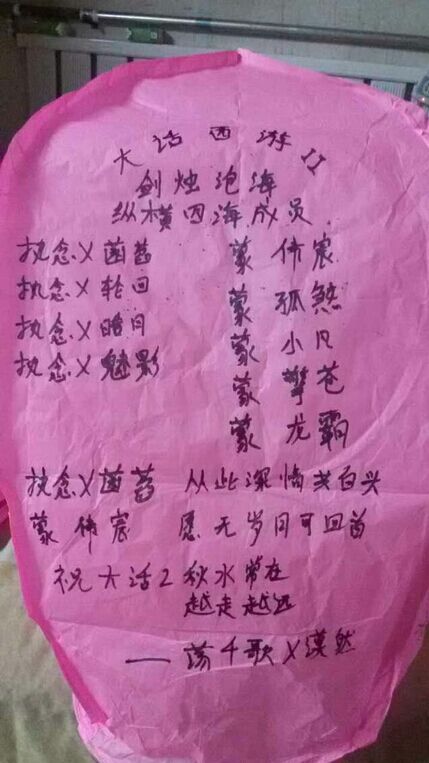 大话西游II
剑烛沧海
纵横四海成员
执念X菡萏 蒙 伟宸
执念X轮回 蒙 孤煞
执念X暗月 蒙 小凡
执念X魅影 蒙 擎苍
蒙 龙霸
执念X菡萏 从此深情共白头
蒙 伟宸 愿无岁月可回首
祝大话2秋水常在
越走越远
——荡千歌X漠然